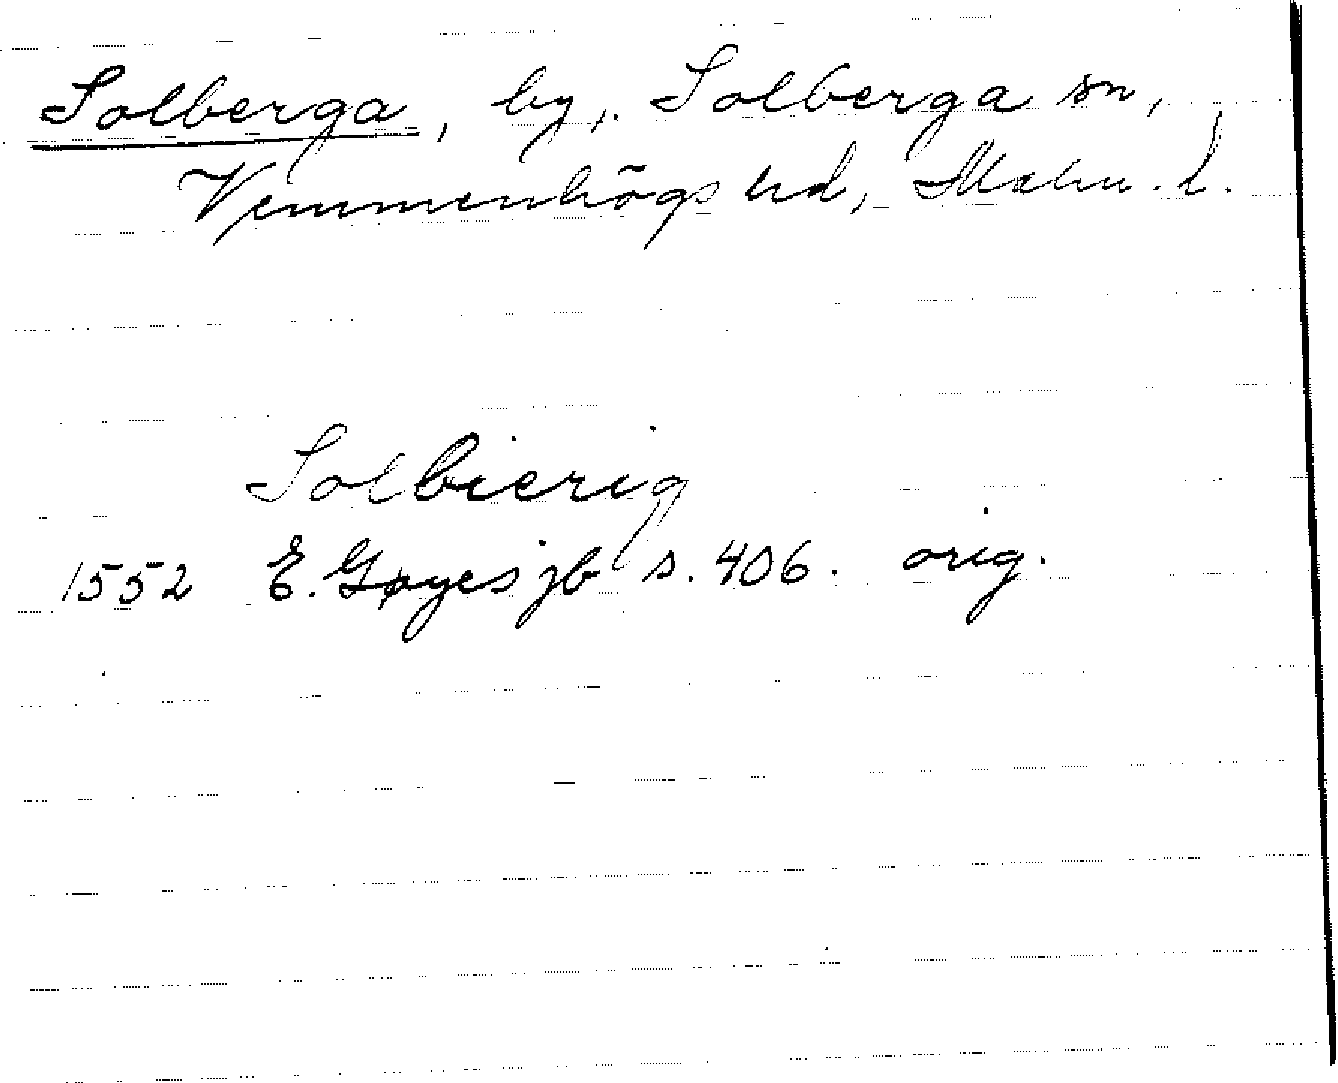 Solberga, by, Solberga sn,
Vemmenhögs hd, Malm. l.
Solbierig
1552 E. Gøyes jb s. 406. orig.